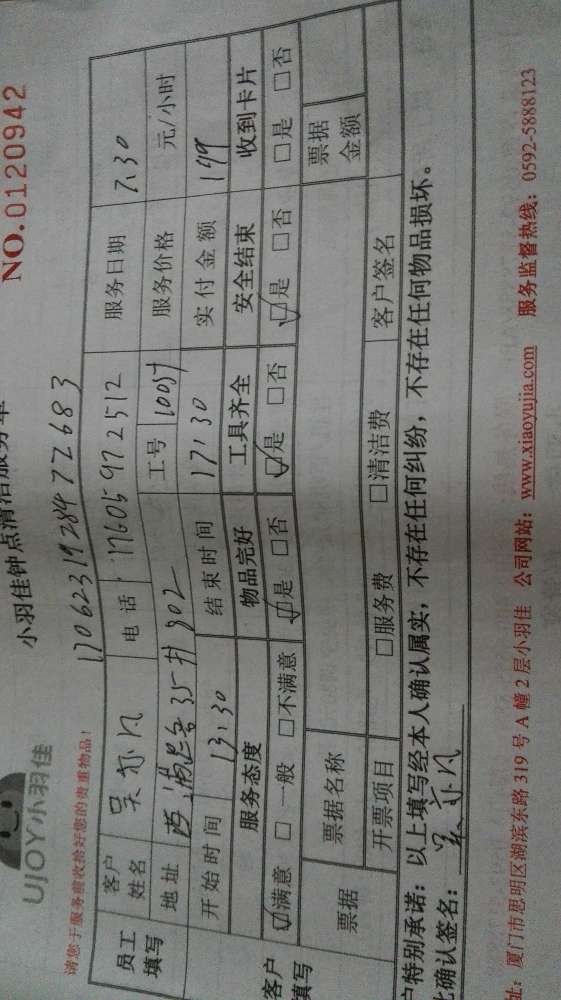 UJOY小羽佳
小羽佳钟点清洁服务单
NO.0120942
请您于服务前收拾好您的贵重物品！
170623192847 22683
员工填写 客户姓名 吴亦凡 电话 17605972512 服务日期 7.30
地址 35 802 工号 服务价格 元/小时
开始时间 13:30 结束时间 17:30 实付金额 199
客户填写 服务态度 物品完好 工具齐全 安全结束 收到卡片
☑满意 □一般 □不满意 ☑是 □否 ☑是 □否 ☑是 □否 □是 □否
票据 票据名称 票据金额
开票项目 □服务费 □清洁费 客户签名
户特别承诺：以上填写经本人确认属实，不存在任何纠纷，不存在任何物品损坏。
确认签名：吴亦凡
址：厦门市思明区湖滨东路 319 号 A 幢 2 层小羽佳 公司网站：www.xiaoyujia.com 服务监督热线：0592-5888123